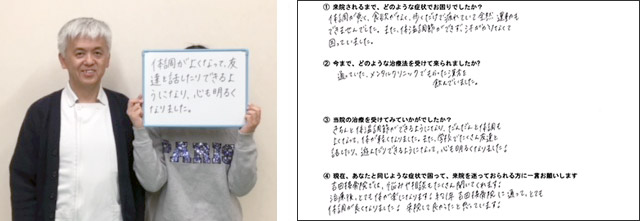 体調がよくなって、友
達と話したりできるよ
うになり、心も明るく
なりました。
PANIC
① 来院されるまで、どのような症状でお困りでしたか?
体調が悪く、食欲がなく、歩くだけで疲れていて全然 運動も
できませんでした。また、体温調節ができず、汗がかけなくて
困っていました。
② 今まで、どのような治療法を受けて来られましたか?
通っていた、メンタルクリニックでもらった漢方を
飲んでいました。
③ 当院の治療を受けてみていかがでしたか?
きちんと体温調節ができるようになり、だんだんと体調も
よくなって、体が軽くなりました。また、学校でたくさん友達と
話したり、遊んだりできるようになって、心も明るくなりました。
④ 現在、あなたと同じような症状で困って、来院を迷っておられる方に一言お願いします
吉田接骨院では、悩みや相談もたくさん聞いてくれます。
治療後、とても体が楽になります。
吉田接骨院に通って、とても
体調が良くなりました。来院して良かったと思っています。